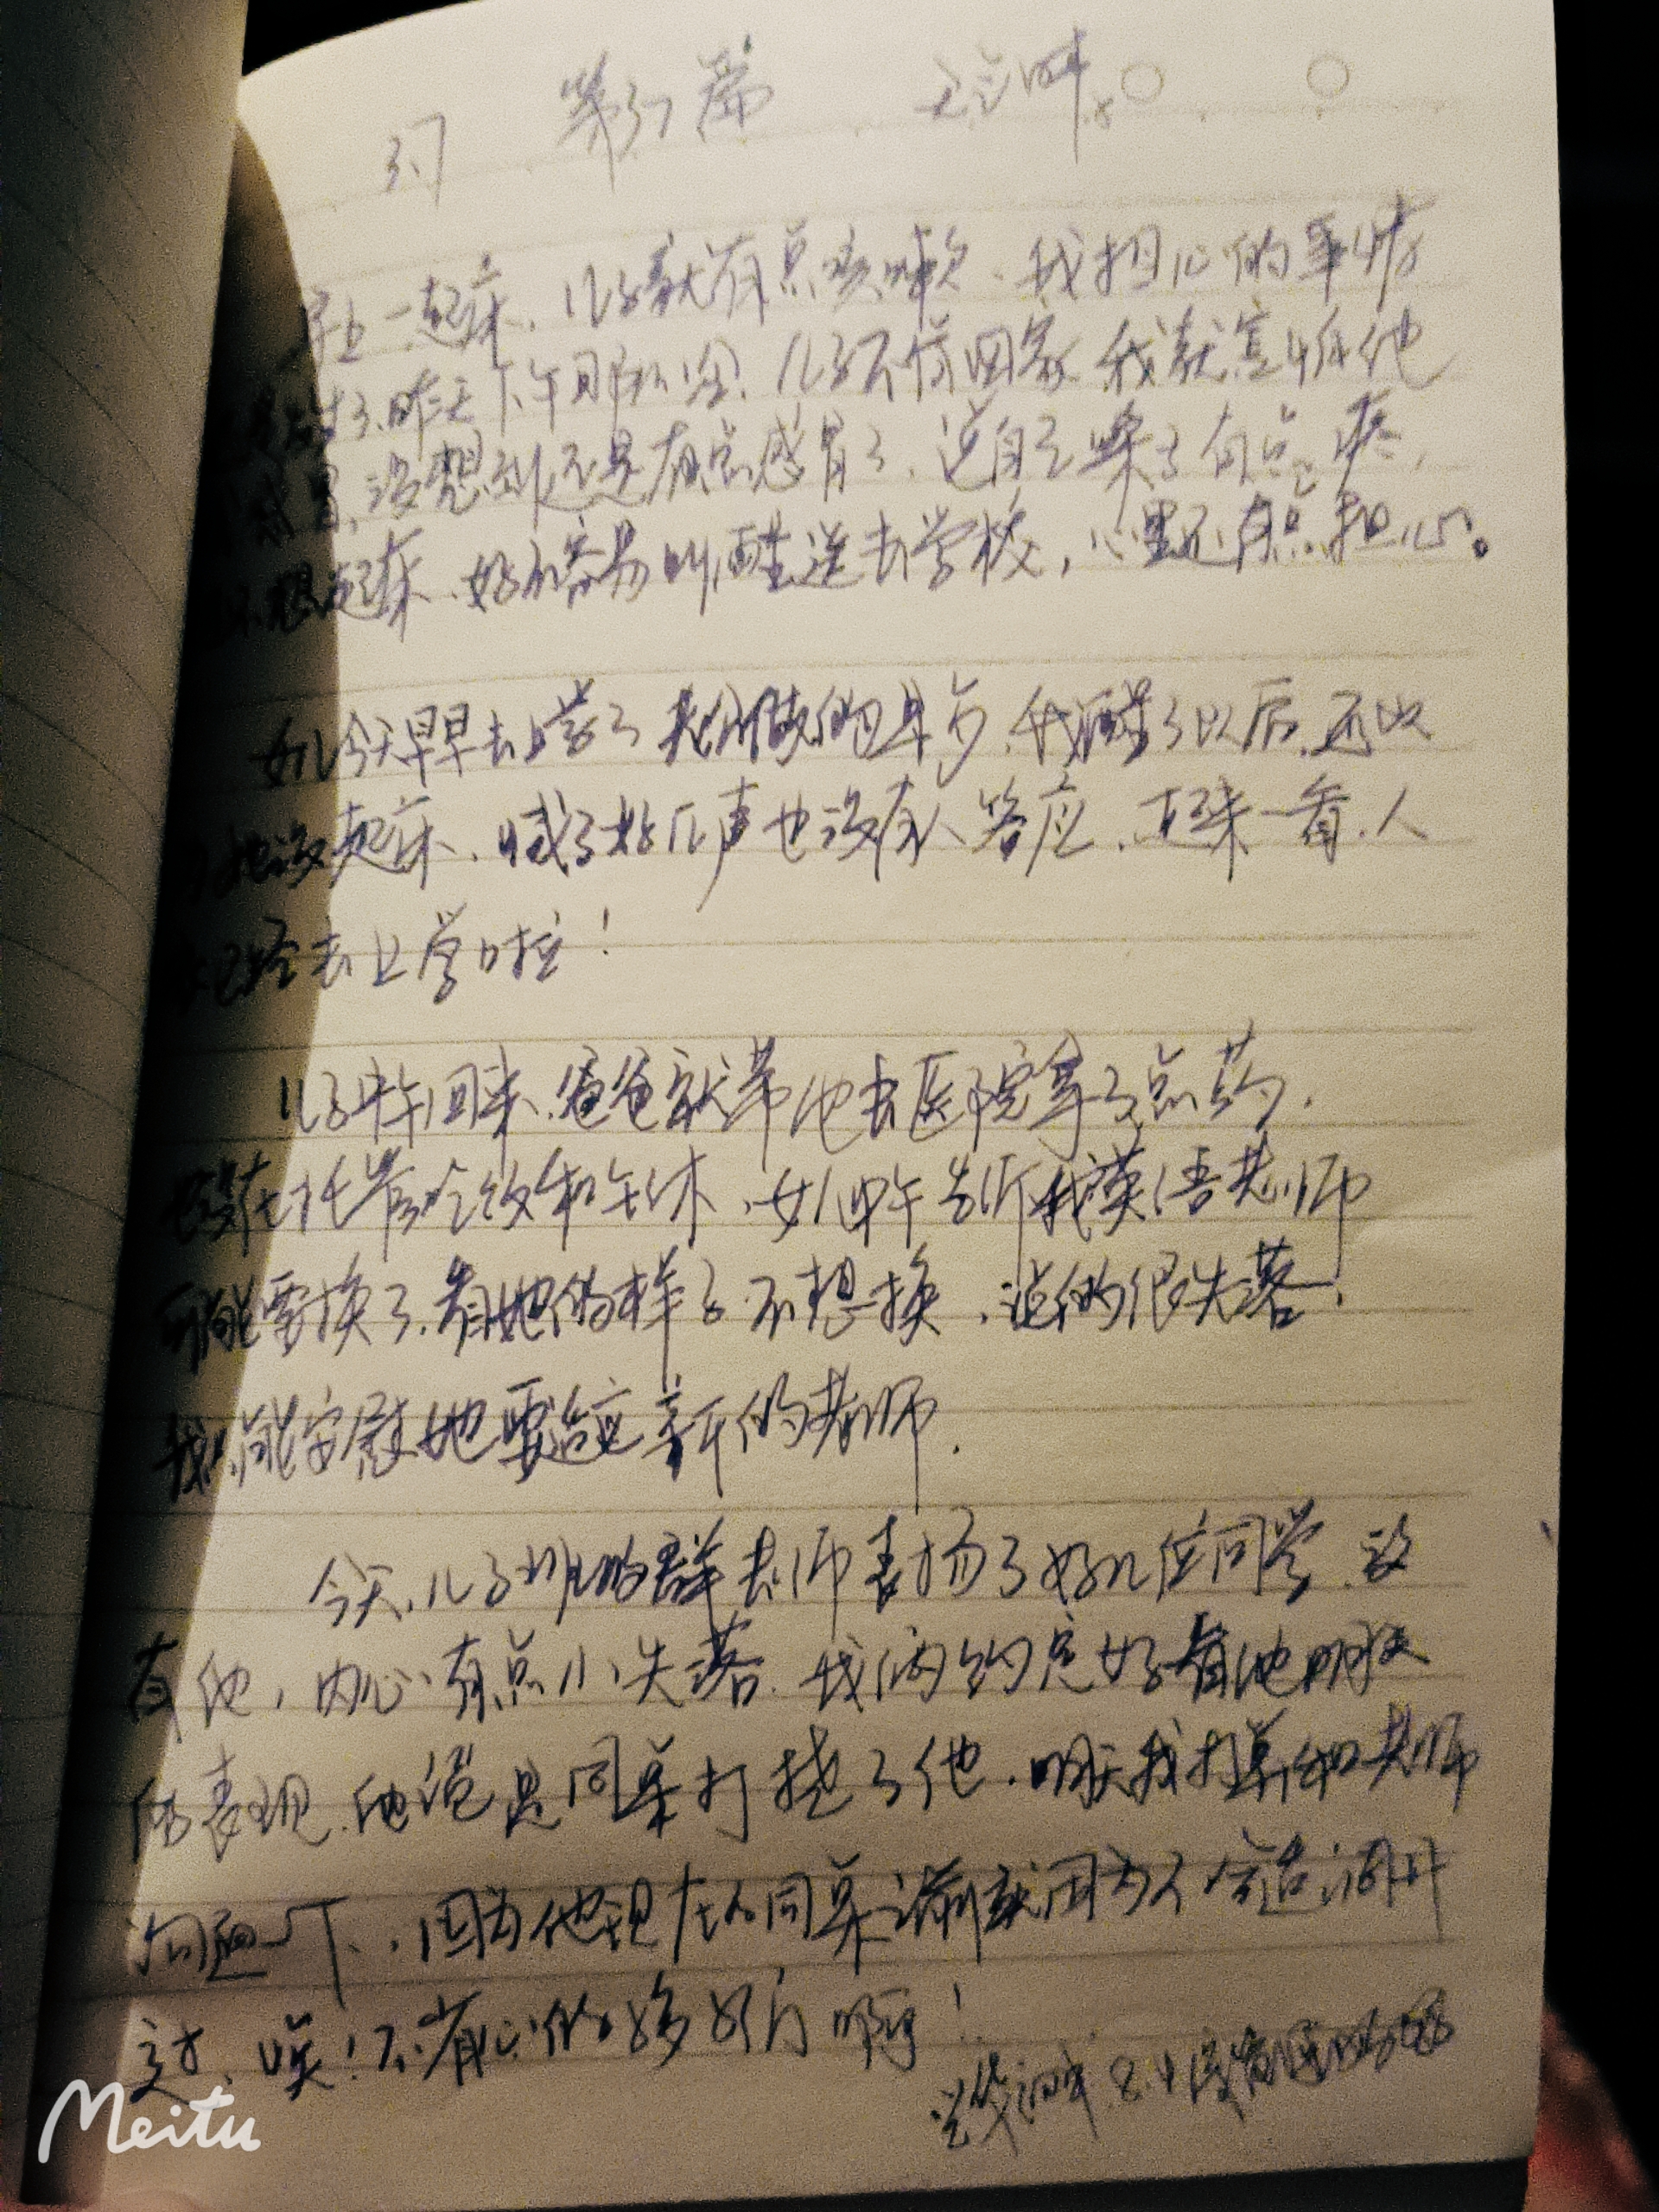 第37篇
早上一起床、儿子就有点咳嗽、我担心的事情
发生了、昨天下午那么冷、儿子不肯回家 我就害怕他
感冒、没想到还是有点感冒了、说自己嗓子有点疼，
不想起床、好不容易叫醒送去学校，心里还有点担心。
女儿今天早早去上学了 我醒了以后、还以
为她没起床、喊了好几声也没有人答应、起来一看、人
已经去上学啦！
儿子中午回来、爸爸就带他去医院拿了点药、
在托管吃饭和午休、女儿中午告诉我英语老师
可能要换了、看她的样子不想换、说的很失落、
我只能安慰她要适应新的老师.
今天、儿子班的群老师表扬了好几位同学、没
有他，内心有点小失落、我俩约定好看他明天
的表现、他说是同桌打扰了他、明天我打算和老师
沟通一下、因为他现在的同桌之前就因为不合适调开
过、唉！不省心的
Meitu